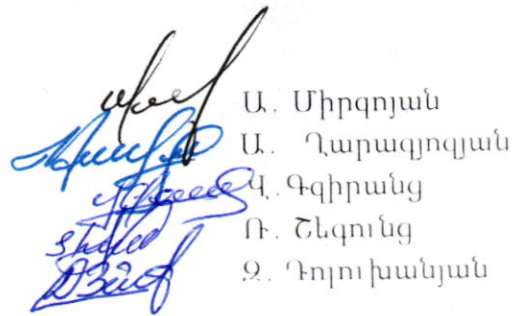 Ա. Միրզոյան
Ա. Ղարագյոզյան
Վ. Գզիրանց
Ռ. Շեգունց
Զ. Դոլուխանյան